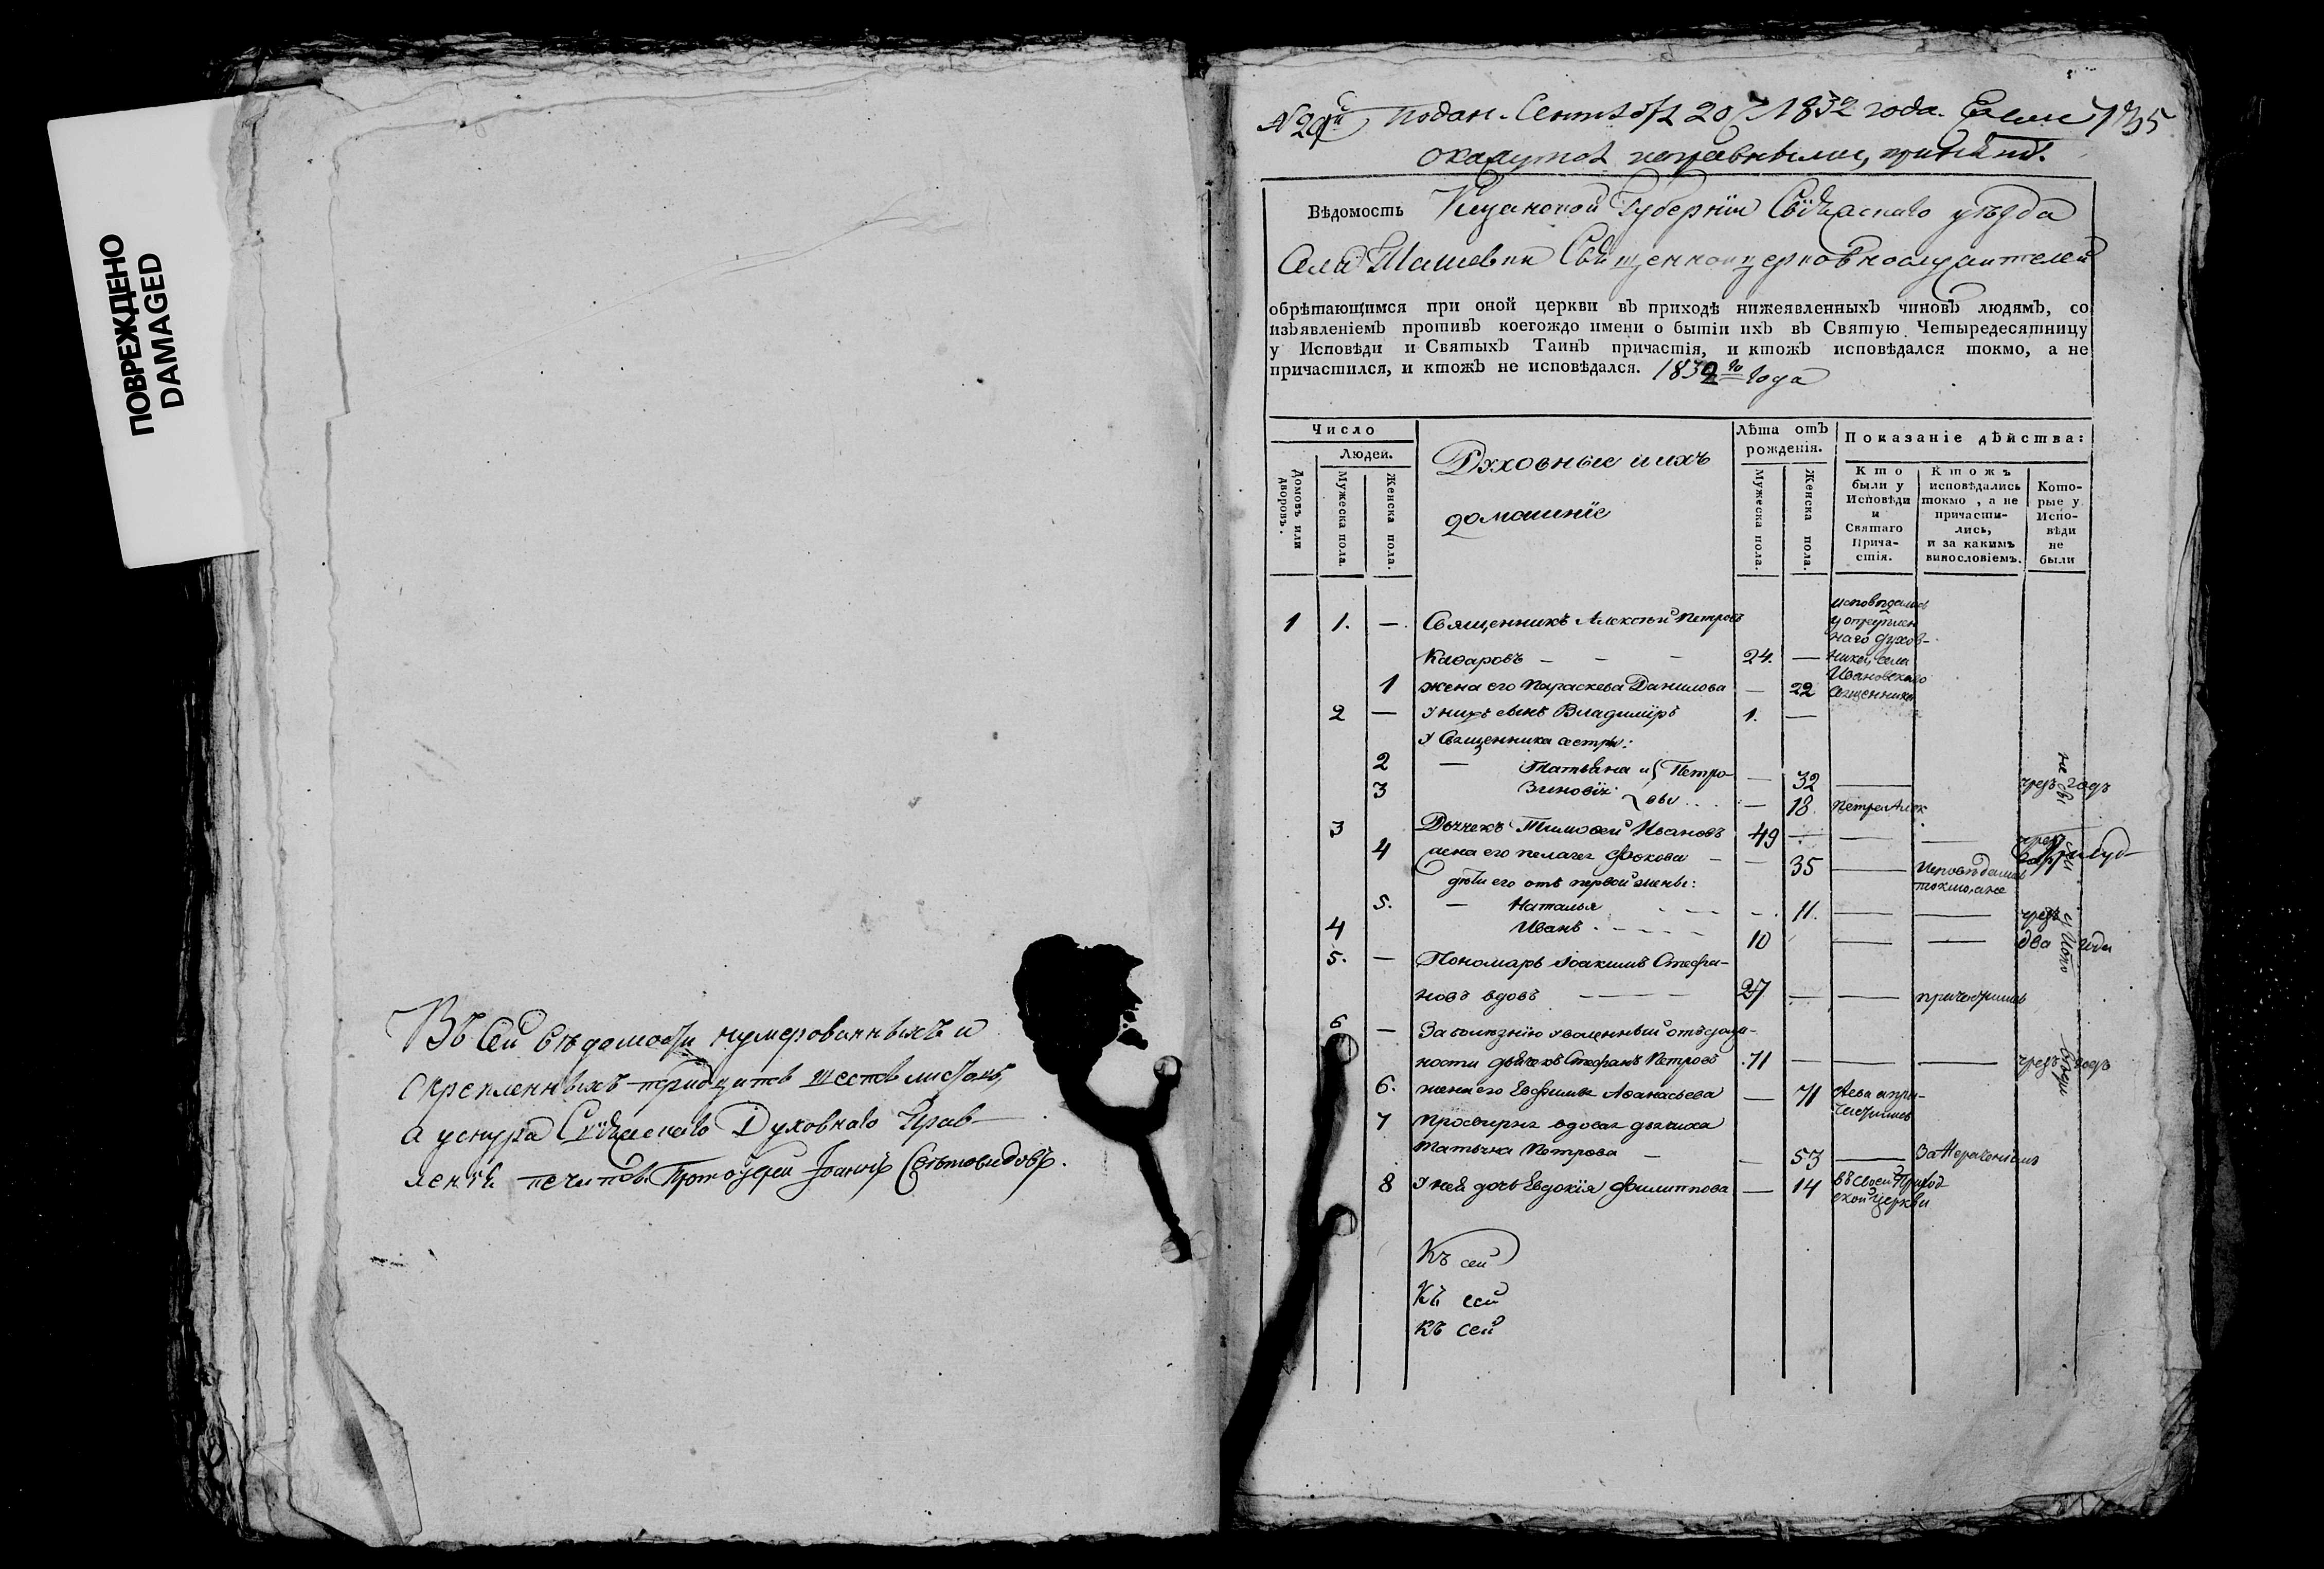 ПОВРЕЖДЕНО
DAMAGED
Въ сей ведомости нумерованныхъ и
скрепленныхъ тридцать шесть листовъ,
а у снура Свіяжскаго Духовнаго Прав-
ленія печать. Протоіерей Іоаннъ Световидовъ.
подан. Сентября 20 1832 года. Если
окажутся исправными, принять.
Вѣдомость Казанской Губерніи Свіяжскаго уѣзда
Села Ташевки Священноцерковнослужителей
обрѣтающимся при оной церкви въ приходѣ нижеявленныхъ чиновъ людямъ, со
изъявленіемъ противъ коегождо имени о бытіи ихъ въ Святую Четыредесятницу
у Исповѣди и Святыхъ Таинъ причастія, и ктожъ исповѣдался токмо, а не
причастился, и ктожъ не исповѣдался. 1832го года
Число
Людей.
Домовъ или дворовъ.
Мужеска пола.
Женска пола.
Духовные и ихъ
домашніе
Лѣта отъ
рожденія.
Мужеска пола.
Женска пола.
Показаніе дѣйства:
Кто
были у
Исповѣди
и
Святаго
Прича-
стія.
Ктожъ
исповѣдались
токмо, а не
причасти-
лись,
и за какимъ
винословіемъ.
Кото-
рые у
Испо-
вѣди
не
были
1 1. — Священникъ Алексѣй Петровъ
Кафаровъ — — — 24. —
исповѣдались
у опредѣлен
наго духов-
ника, села
Ивановскаго
Священника
1 жена его Параскева Данилова — 22
2 — У нихъ сынъ Владиміръ 1. —
У Священника сестры:
2 — Татьяна и Петро- — 32 — чрезъ годъ
3 Зиновія вы — 18
3 Дьячекъ Тимофей Ивановъ 49 — —
4 жена его Пелагея Фокова — — 35 — Исповѣдались
токмо, а не
дѣти его отъ первой жены:
5. — Наталья — — 11. — — чрезъ
4 Иванъ — — 10 — — два года
5. — Пономарь Іоакимъ Стефа-
новъ вдовъ — — 27 — — причастились
6 — За болѣзнію уволенный отъ долж-
ности дьячекъ Стефанъ Петровъ 71 — — — чрезъ годъ
6. жена его Евфимья Афанасьева — 71
7 Просвирня вдовая дьячиха
Татьяна Петрова — — 53 — За нераченіемъ
8 У ней дочь Евдокія Филиппова — 14 въ своей Приход
ской церкви
Къ сей
Къ сей
Къ сей